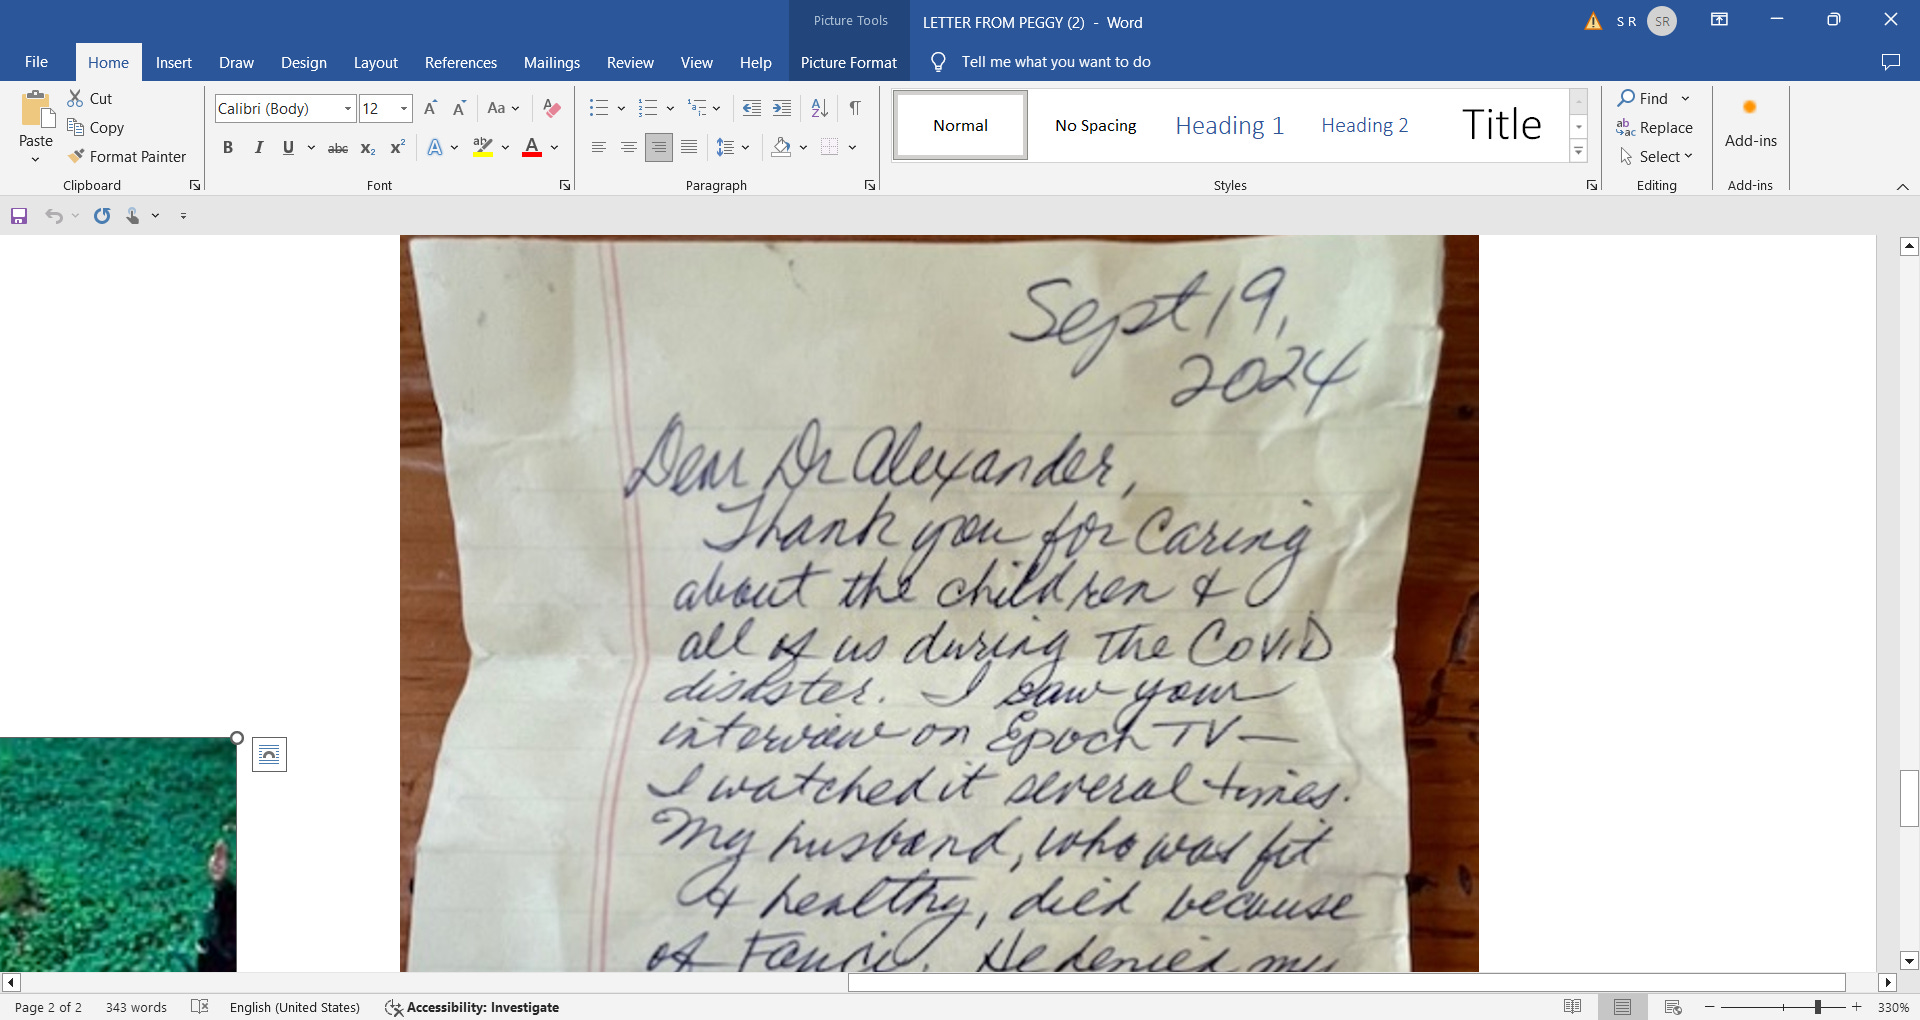 Picture Tools
LETTER FROM PEGGY (2) - Word
S R
SR
File
Home
Insert
Draw
Design
Layout
References
Mailings
Review
View
Help
Picture Format
Tell me what you want to do
Paste
Cut
Copy
Format Painter
Clipboard
Calibri (Body)
12
Aa
B I U abc x₂ x² A ab A
Font
Paragraph
Normal
No Spacing
Heading 1
Heading 2
Title
Styles
Find
Replace
Select
Editing
Add-ins
Add-ins
Sept 19,
2024
Dear Dr Alexander,
Thank you for caring
about the children &
all of us during the COVID
disaster. I saw your
interview on Epoch TV—
I watched it several times.
My husband, who was fit
& healthy, died because
of Fauci. He denied my
Page 2 of 2
343 words
English (United States)
Accessibility: Investigate
330%